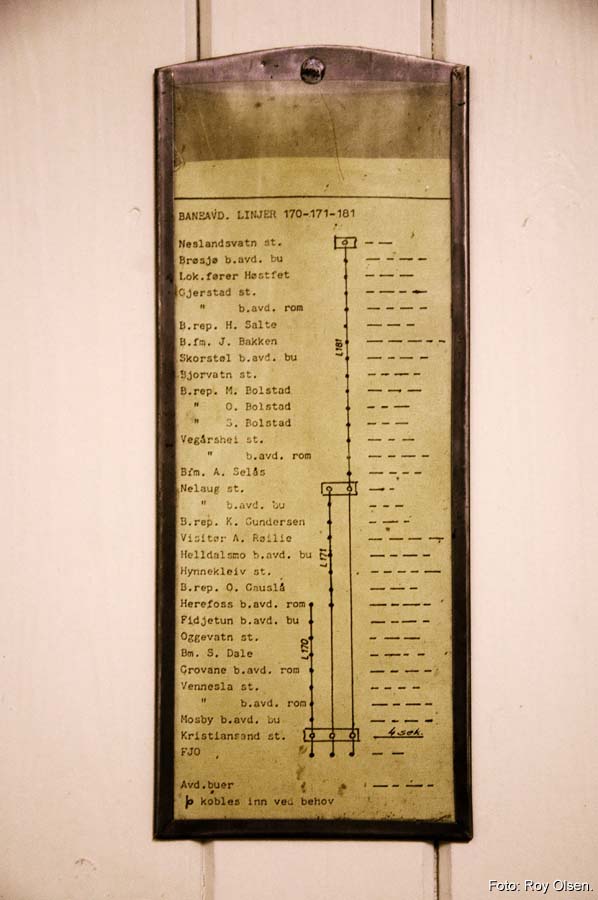 BANEAVD. LINJER 170-171-181
Neslandsvatn st.
Brøsjø b.avd. bu
Lok.fører Høstfet
Gjerstad st.
" b.avd. rom
B.rep. H. Salte
B.fm. J. Bakken
Skorstøl b.avd. bu
Bjorvatn st.
B.rep. M. Bolstad
" O. Bolstad
" S. Bolstad
Vegårshei st.
" b.avd. rom
Bfm. A. Selås
Nelaug st.
" b.avd. bu
B.rep. K. Gundersen
Visitør A. Røilie
Helldalsmo b.avd. bu
Hynnekleiv st.
B.rep. O. Gauslå
Herefoss b.avd. rom
Fidjetun b.avd. bu
Oggevatn st.
Bm. S. Dale
Grovane b.avd. rom
Vennesla st.
" b.avd. rom
Mosby b.avd. bu
Kristiansand st. 4 sek.
FJO
Avd.buer
kobles inn ved behov
L181
L171
L170
Foto: Roy Olsen.